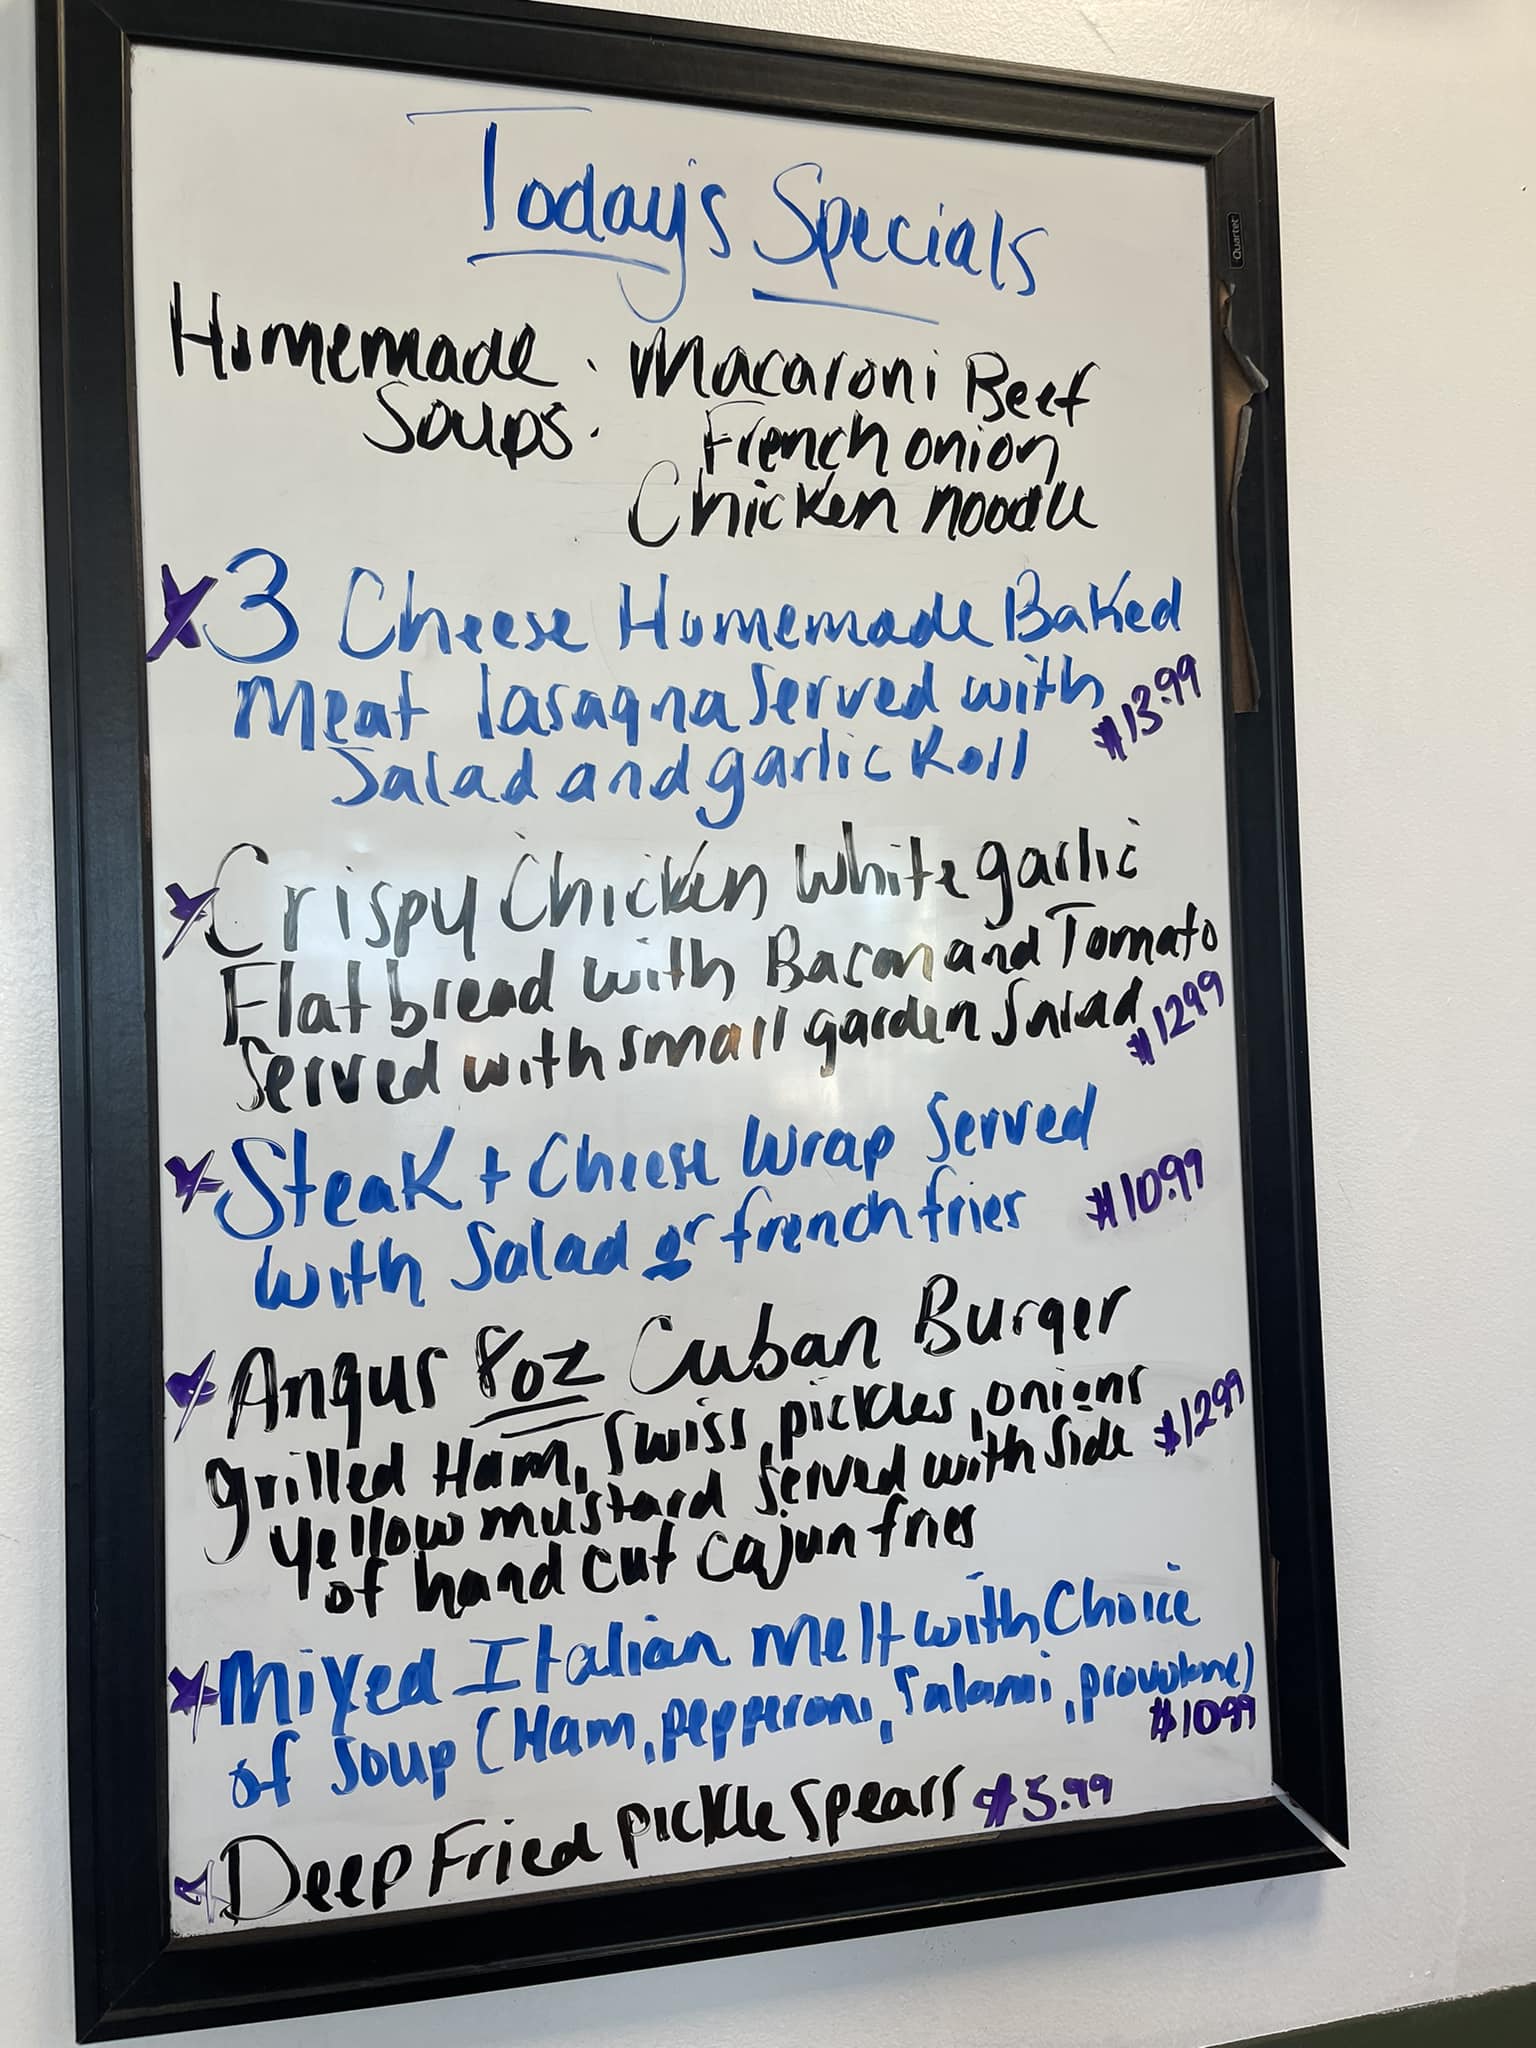 Today's Specials
Quartet
Homemade : Macaroni Beef
Soups. French onion
Chicken noodle
3 Cheese Homemade Baked
Meat lasagna Served with $13.99
Salad and garlic Roll
Crispy Chicken White garlic
Flat bread with Bacon and Tomato
Served with small garden Salad $12.99
Steak + Cheese Wrap Served
with Salad or french fries $10.99
Angus 8oz Cuban Burger
grilled Ham, Swiss, pickles, onions $12.99
Yellow mustard Served with Side
of hand cut cajun fries
Mixed Italian Melt with Choice
of Soup (Ham, pepperoni, Salami, provolone)
$10.99
Deep Fried pickle Spears $5.99